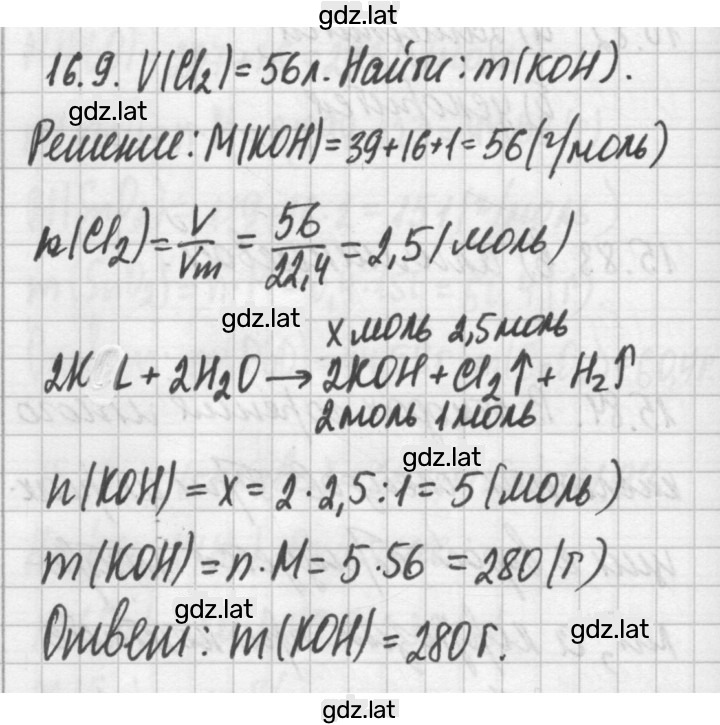 gdz.lat
16.9. V(Cl₂) = 56л. Найти: m(KOH).
gdz.lat
Решение: M(KOH) = 39+16+1 = 56 (г/моль)
n(Cl₂) = V/Vm = 56/22,4 = 2,5 (моль)
gdz.lat
x моль 2,5 моль
2K L + 2H₂O → 2KOH + Cl₂↑ + H₂↑
2 моль 1 моль
gdz.lat
n(KOH) = x = 2·2,5:1 = 5 (моль)
m(KOH) = n·M = 5·56 = 280 (г)
gdz.lat
Ответ: m(KOH) = 280 г.
gdz.lat
gdz.lat